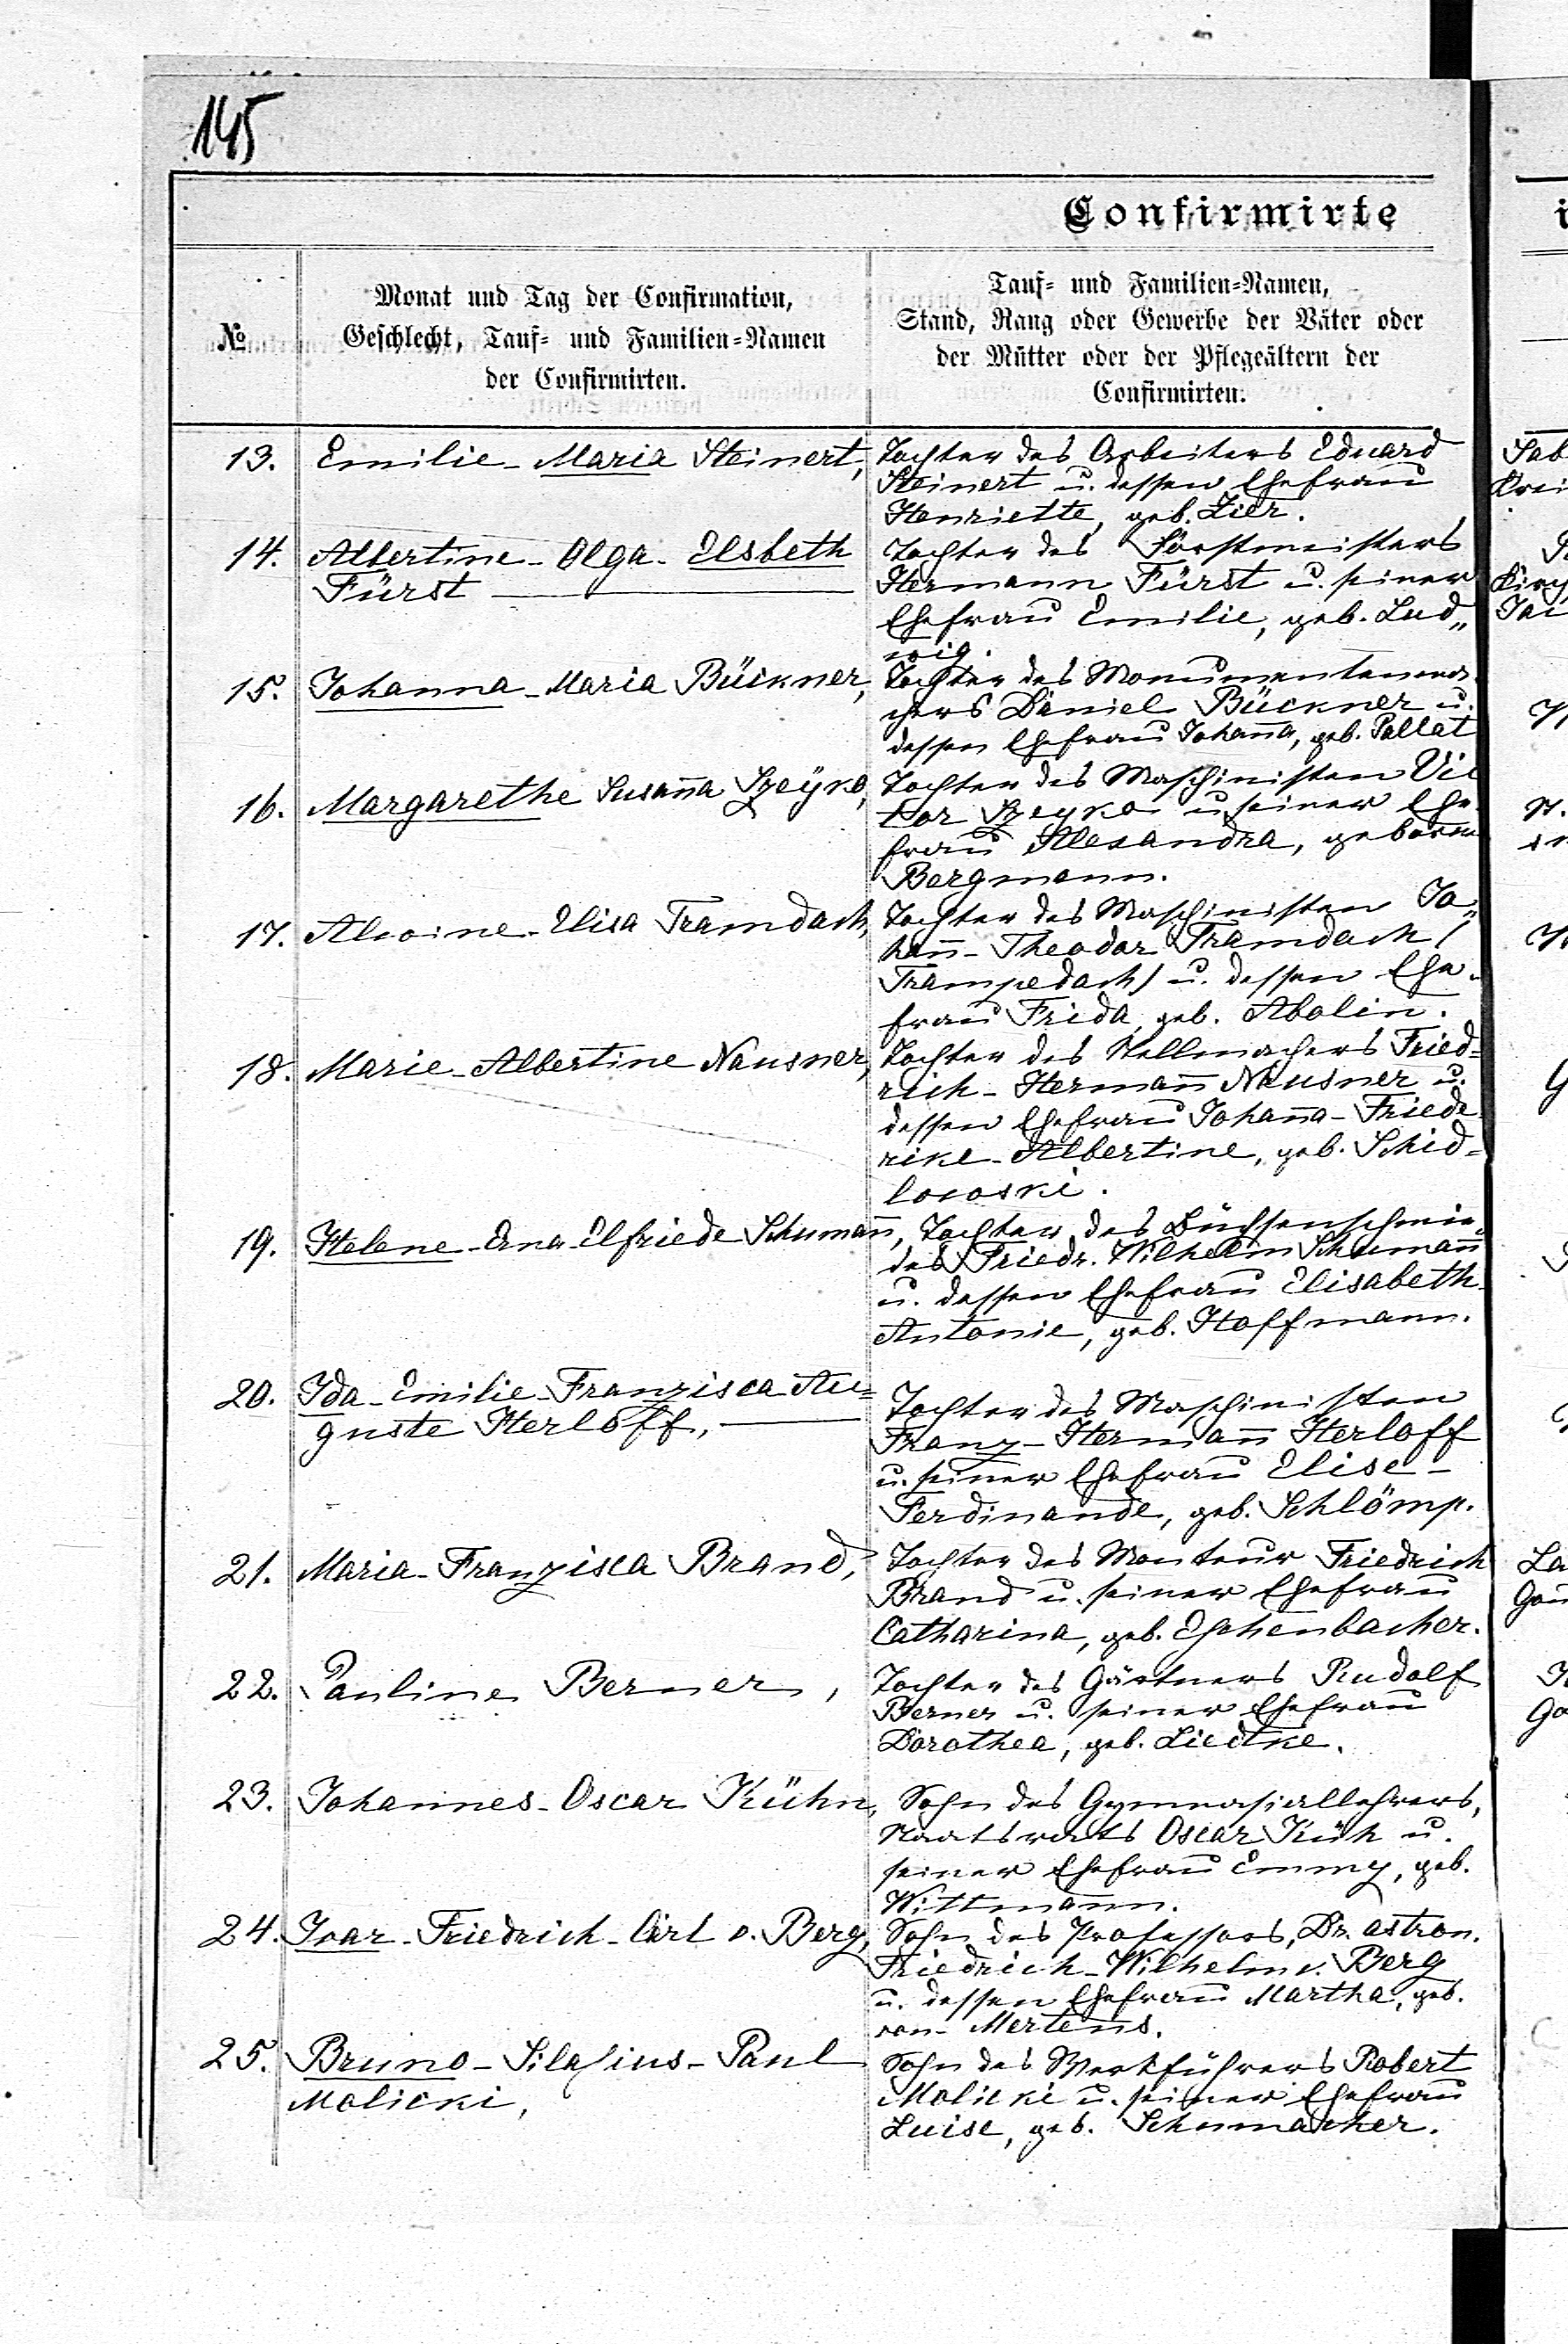 145
Confirmirte
№
Monat und Tag der Confirmation,
Geschlecht, Tauf- und Familien-Namen
der Confirmirten.
Tauf- und Familien-Namen,
Stand, Rang oder Gewerbe der Väter oder
der Mütter oder der Pflegeältern der
Confirmirten.
13. Emilie-Maria Steinert,
Tochter des Arbeiters Eduard
Steinert u. dessen Ehefrau
Henriette, geb. Zier.
14. Albertine-Olga-Elsbeth
Fürst
Tochter des Forstmeisters
Hermann Fürst u. seiner
Ehefrau Emilie, geb. Lud„
wig.
15. Johanna-Maria Bückner,
Tochter des Monumentenma-
chers Daniel Bückner u.
dessen Ehefrau Johanna, geb. Pallat
16. Margarethe Susanna Szeyko,
Tochter des Maschinisten Vic
tor Szeyko u. seiner Ehe-
frau Alexandra, geboren
Bergmann.
17. Alwine-Elisa Tramdach,
Tochter des Maschinisten Jo„
hann-Theodor Tramdach (
Trampedach) u. dessen Ehe-
frau Frida, geb. Abolin.
18. Marie-Albertine Nausner,
Tochter des Stellmachers Fried=
rich-Hermann Nausner u.
dessen Ehefrau Johanna-Friede
rike-Albertine, geb. Schid=
lowski.
19. Helene-Erna-Elfriede Schumann,
Tochter des Büchsenschmie„
des Friedr. Wilhelm Schumann
u. dessen Ehefrau Elisabeth-
Antonie, geb. Hoffmann.
20. Ida-Emilie-Franzisca-Au=
guste Herloff,
Tochter des Maschinisten
Franz-Hermann Herloff
u. seiner Ehefrau Elise-
Ferdinande, geb. Schlömp.
21. Maria-Franzisca Brand,
Tochter des Monteur Friedrich
Brand u. seiner Ehefrau
Catharina, geb. Eschenbacher.
22. Pauline Berner,
Tochter des Gärtners Rudolf
Berner u. seiner Ehefrau
Dorothea, geb. Liedtke.
23. Johannes-Oscar Kühn,
Sohn des Gymnasiallehrers,
Staatsrats Oscar Küh u.
seiner Ehefrau Emmy, geb.
Wittmann.
24. Ivar-Friedrich-Carl v. Berg,
Sohn des Professors, Dr. astron.
Friedrich-Wilhelm v. Berg
u. dessen Ehefrau Martha, geb.
von-Mertens.
25. Bruno-Silasius-Paul
Molicki,
Sohn des Werkführers Robert
Molicki u. seiner Ehefrau
Luise, geb. Schumacher.